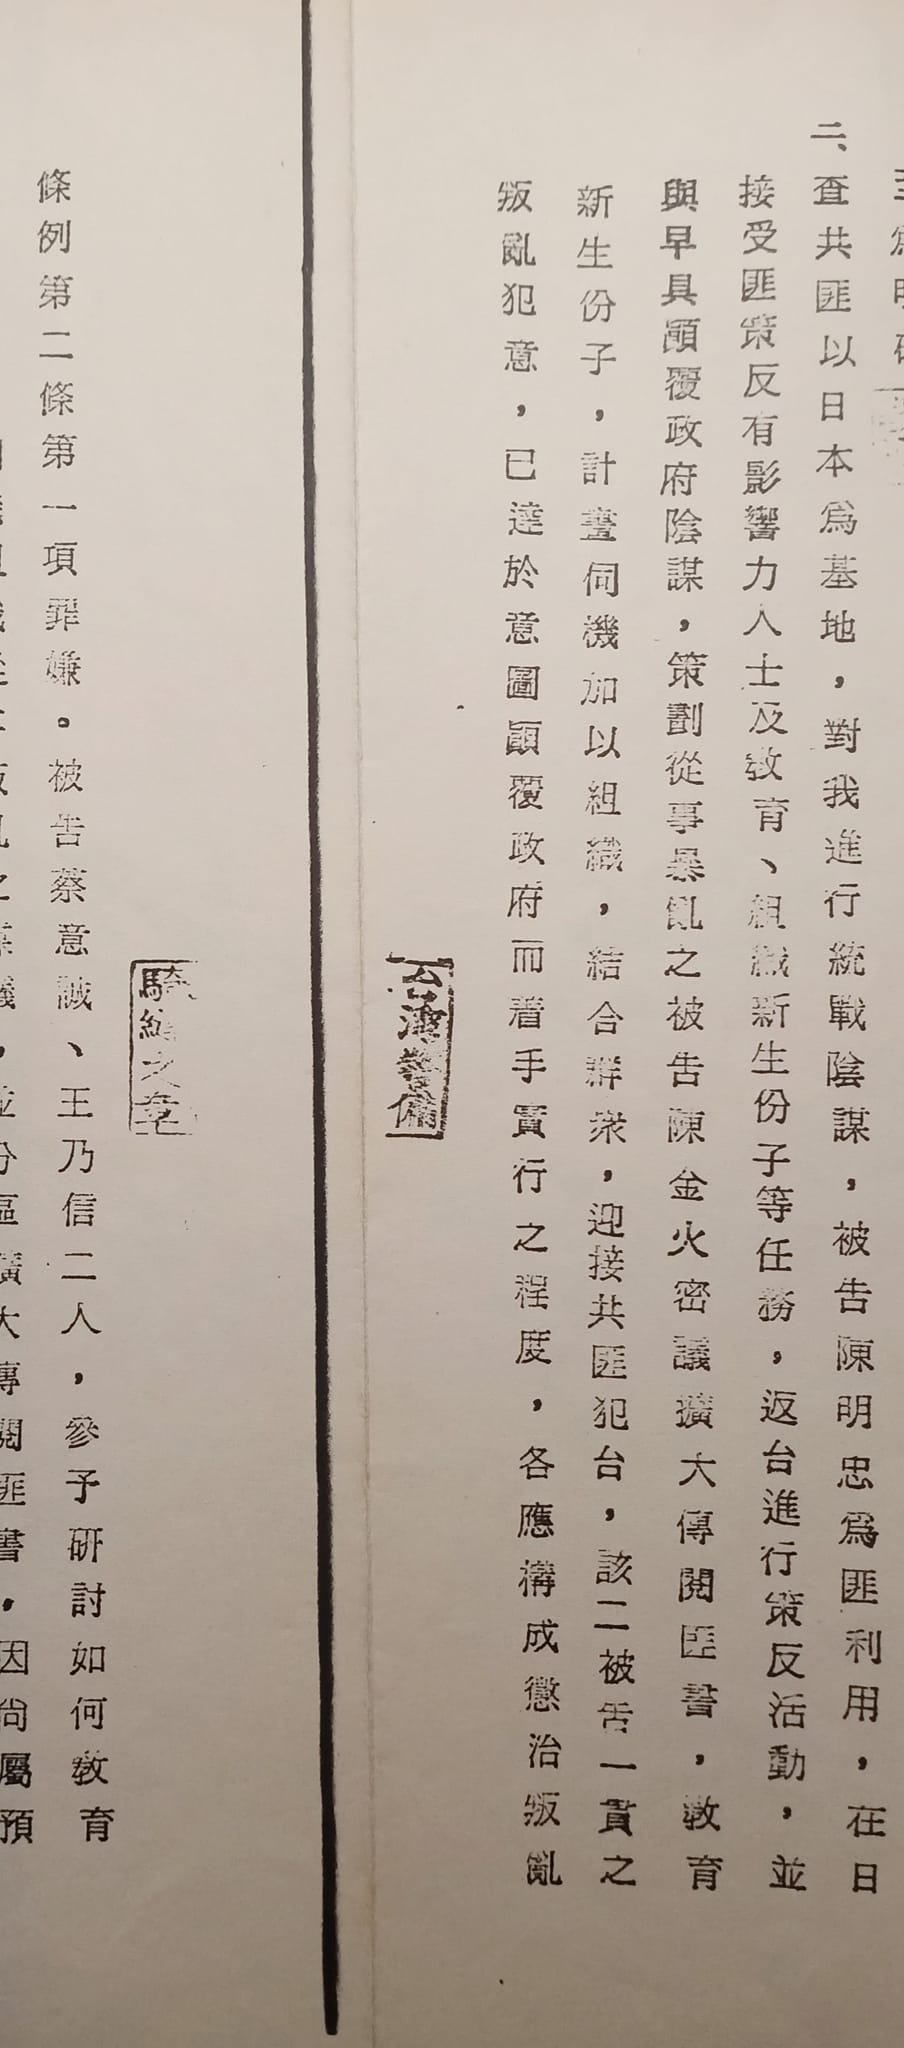 二、查共匪以日本爲基地，對我進行統戰陰謀，被告陳明忠爲匪利用，在日
接受匪策反有影響力人士及教育、組織新生份子等任務，返台進行策反活動，並
與早具顚覆政府陰謀，策劃從事暴亂之被告陳金火密議擴大傳閱匪書，教育
新生份子，計畫伺機加以組織，結合群衆，迎接共匪犯台，該二被告一貫之
叛亂犯意，已達於意圖顚覆政府而着手實行之程度，各應構成懲治叛亂
台灣警備
騎縫之章
條例第二條第一項罪嫌。被告蔡意誠、王乃信二人，參予研討如何教育
叛亂之謀議，並分區擴大傳閱匪書，因尚屬預